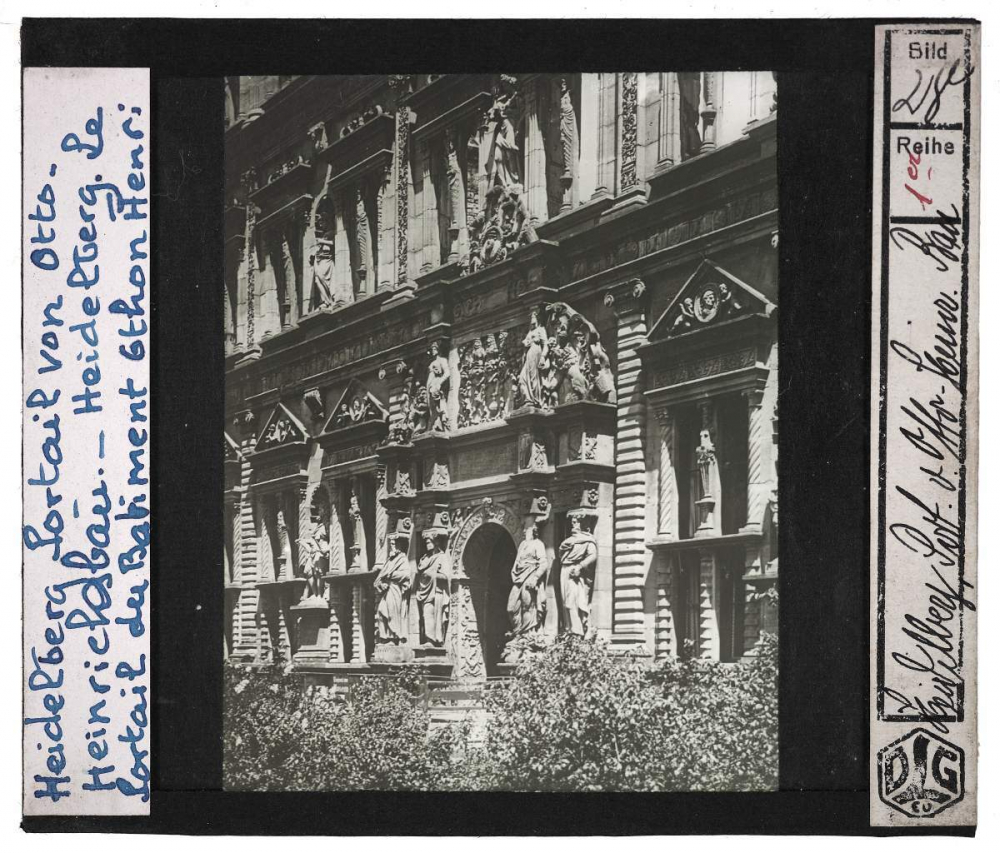 Heidelberg Portail von Otto-
Heinrichsbau. - Heidelberg. Le
Portail du Batiment Othon Henri
Bild
Reihe
1er
Heidelberg Port. v Otto-Heinr. Bau
DLG
EU